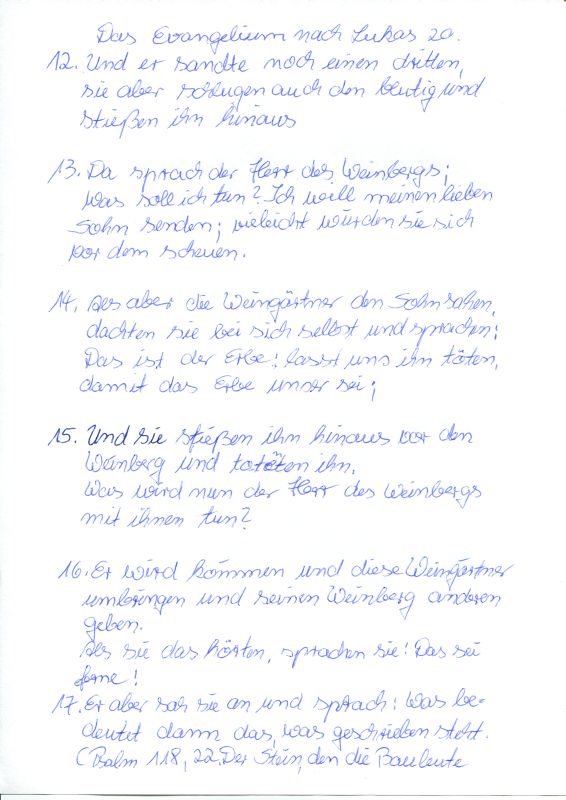 Das Evangelium nach Lukas 20.
12. Und er sandte noch einen dritten,
sie aber schlugen auch den blutig und
stießen ihn hinaus
13. Da sprach der Herr des Weinbergs;
was soll ich tun? Ich will meinen lieben
Sohn senden; vieleicht würden sie sich
vor dem scheuen.
14. Als aber die Weingärtner den Sohn sahen,
dachten sie bei sich selbst und sprachen:
Das ist der Erbe! lasst uns ihn töten,
damit das Erbe unser sei;
15. Und sie stießen ihn hinaus vor den
Weinberg und töteten ihn.
Was wird nun der Herr des Weinbergs
mit ihnen tun?
16. Er wird kommen und diese Weingärtner
umbringen und seinen Weinberg anderen
geben.
Als sie das hörten, sprachen sie! Das sei
ferne!
17. Er aber sah sie an und sprach: Was be-
deutet dann das, was geschrieben steht.
(Psalm 118, 22. Der Stein, den die Bauleute